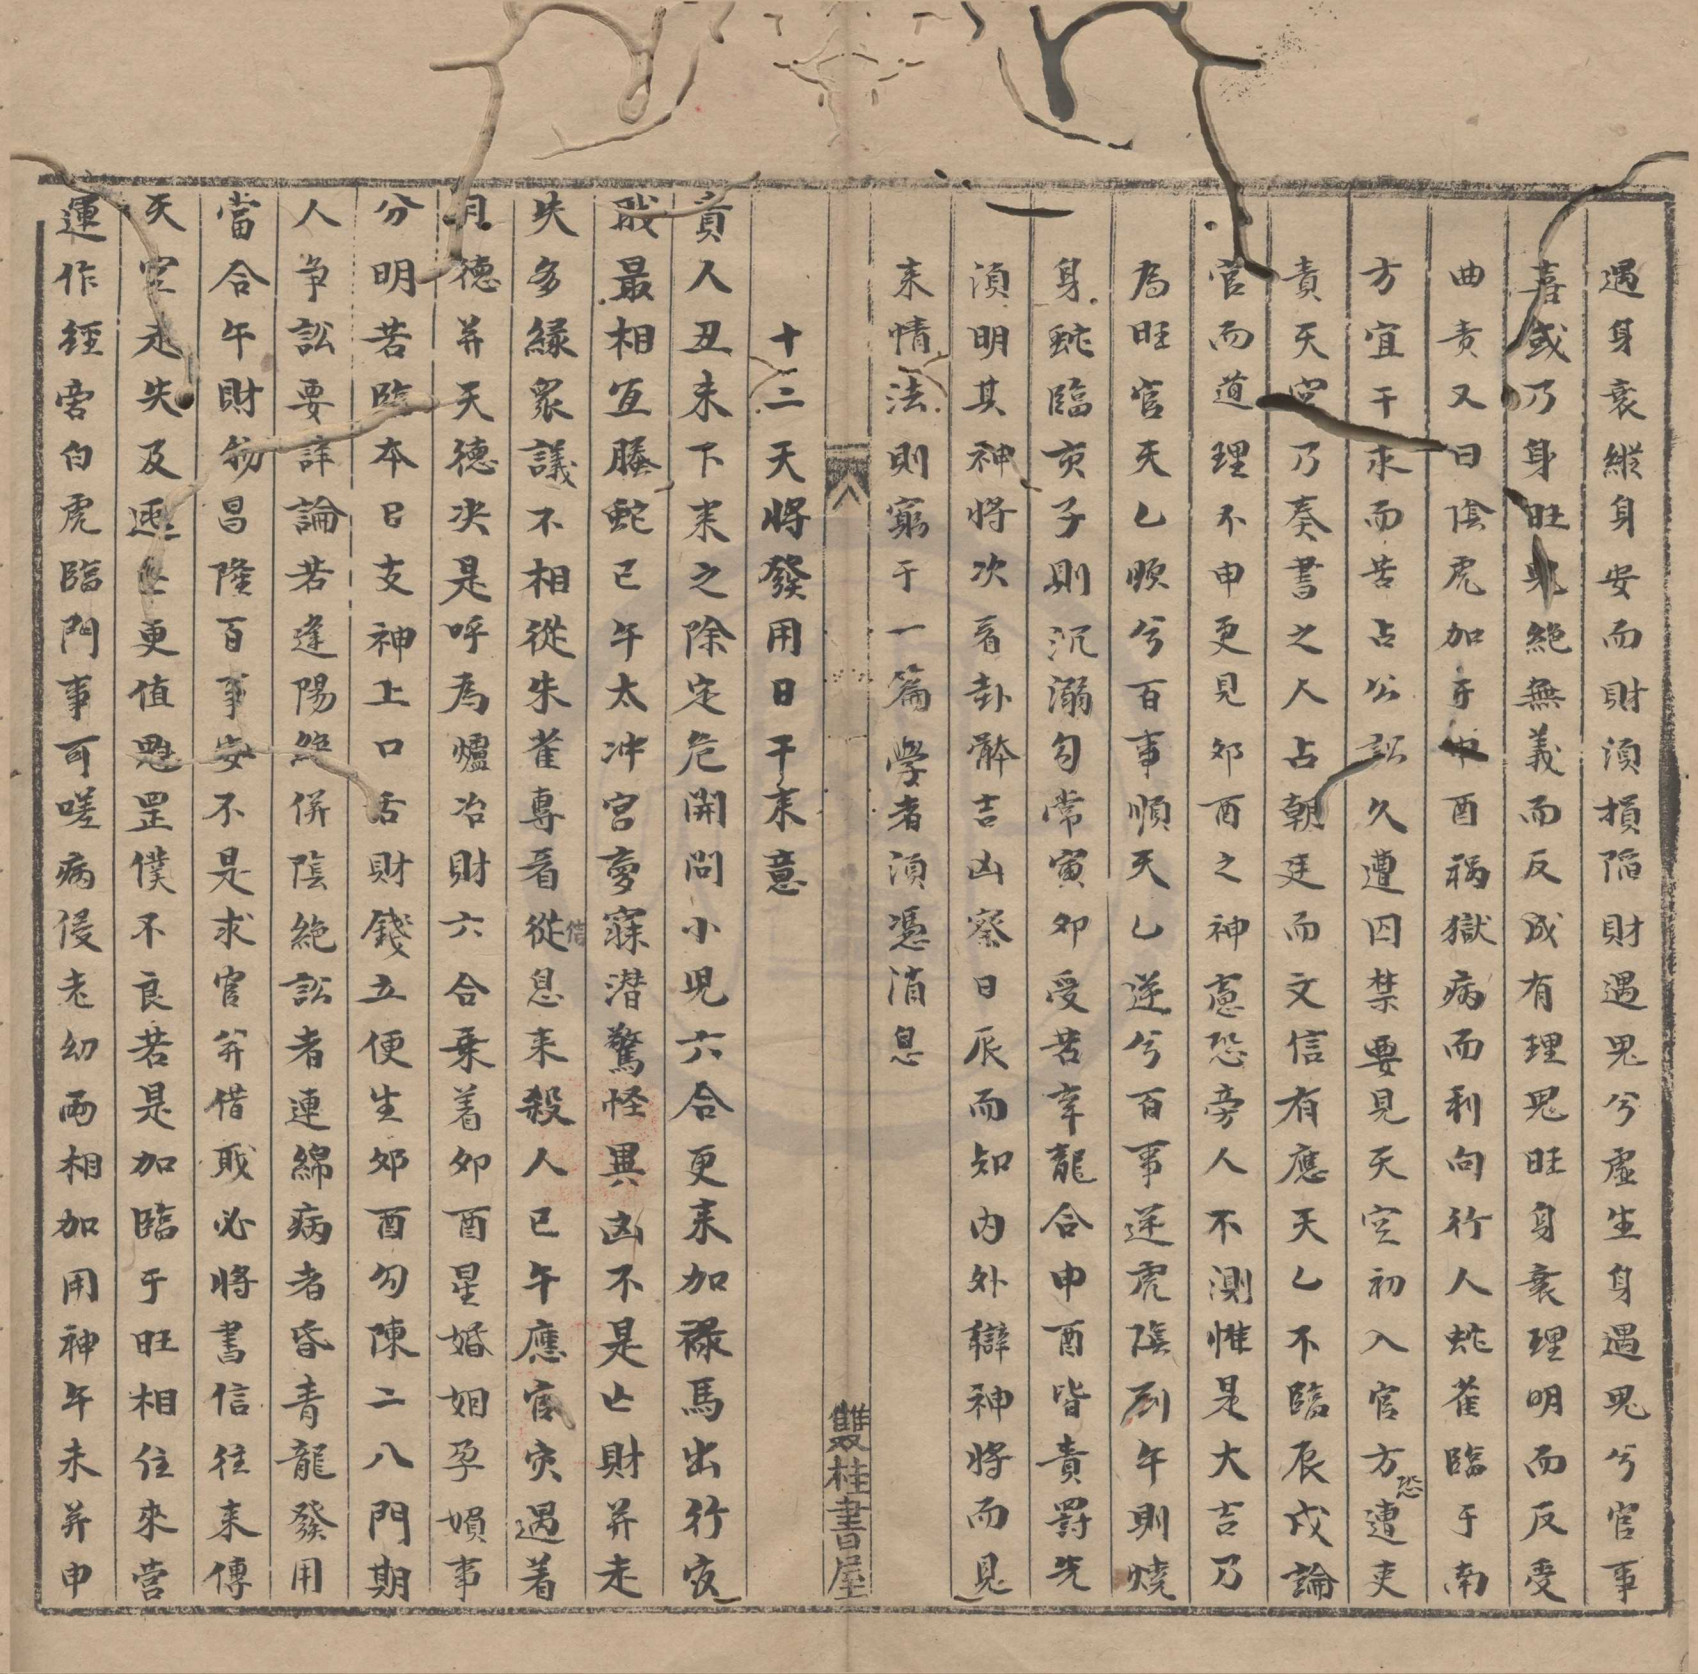 遇身衰縱身安而財湏損陷財遇鬼兮虛生身遇鬼兮官事
喜或乃身旺鬼絶無義而反成有理鬼旺身衰理明而反受
曲責又曰陰虎加酉禍獄病而利向行人蛇雀臨于南
方宜干求而苦占公訟久遭囚禁要見天空初入官方恐遭吏
責天空乃奏書之人占朝廷而文信有應天乙不臨辰戌論
官而道理不申更見夘酉之神憲恐旁人不測惟是大吉乃
為旺官天乙順兮百事順天乙逆兮百事逆虎陰到午則燒
身蛇臨亥子則沉溺勾常寅卯受苦辛龍合申酉皆責罰先
湏明其神將次看卦骵吉凶察日辰而知内外辯神將而見
来情法則窮于一篇學者湏憑消息
雙桂書屋
十二天將發用日干来意
貴人丑未下来之除定危開問小児六合更来加禄馬出行㝎
戝最相宜螣蛇巳午太冲宫夢寐潜驚怪異凶不是亡財并走
失多緣衆議不相從朱雀專看從信息来殺人巳午應官灾遇着
月德并天德决是呼為爐冶財六合乗着夘酉星婚姻孕損事
分明若臨本日支神上口舌財錢立便生夘酉勾陳二八門期
人争訟要詳論若逢陽絶併陰絶訟者連綿病者昏青龍發用
當合午財物昌隆百事安不是求官并借戝必將書信往来傳
天空走失及更值魁罡僕不良若是加臨于旺相住來营
運作經旁白虎臨門事可嗟病侵老幼两相加用神午未并申